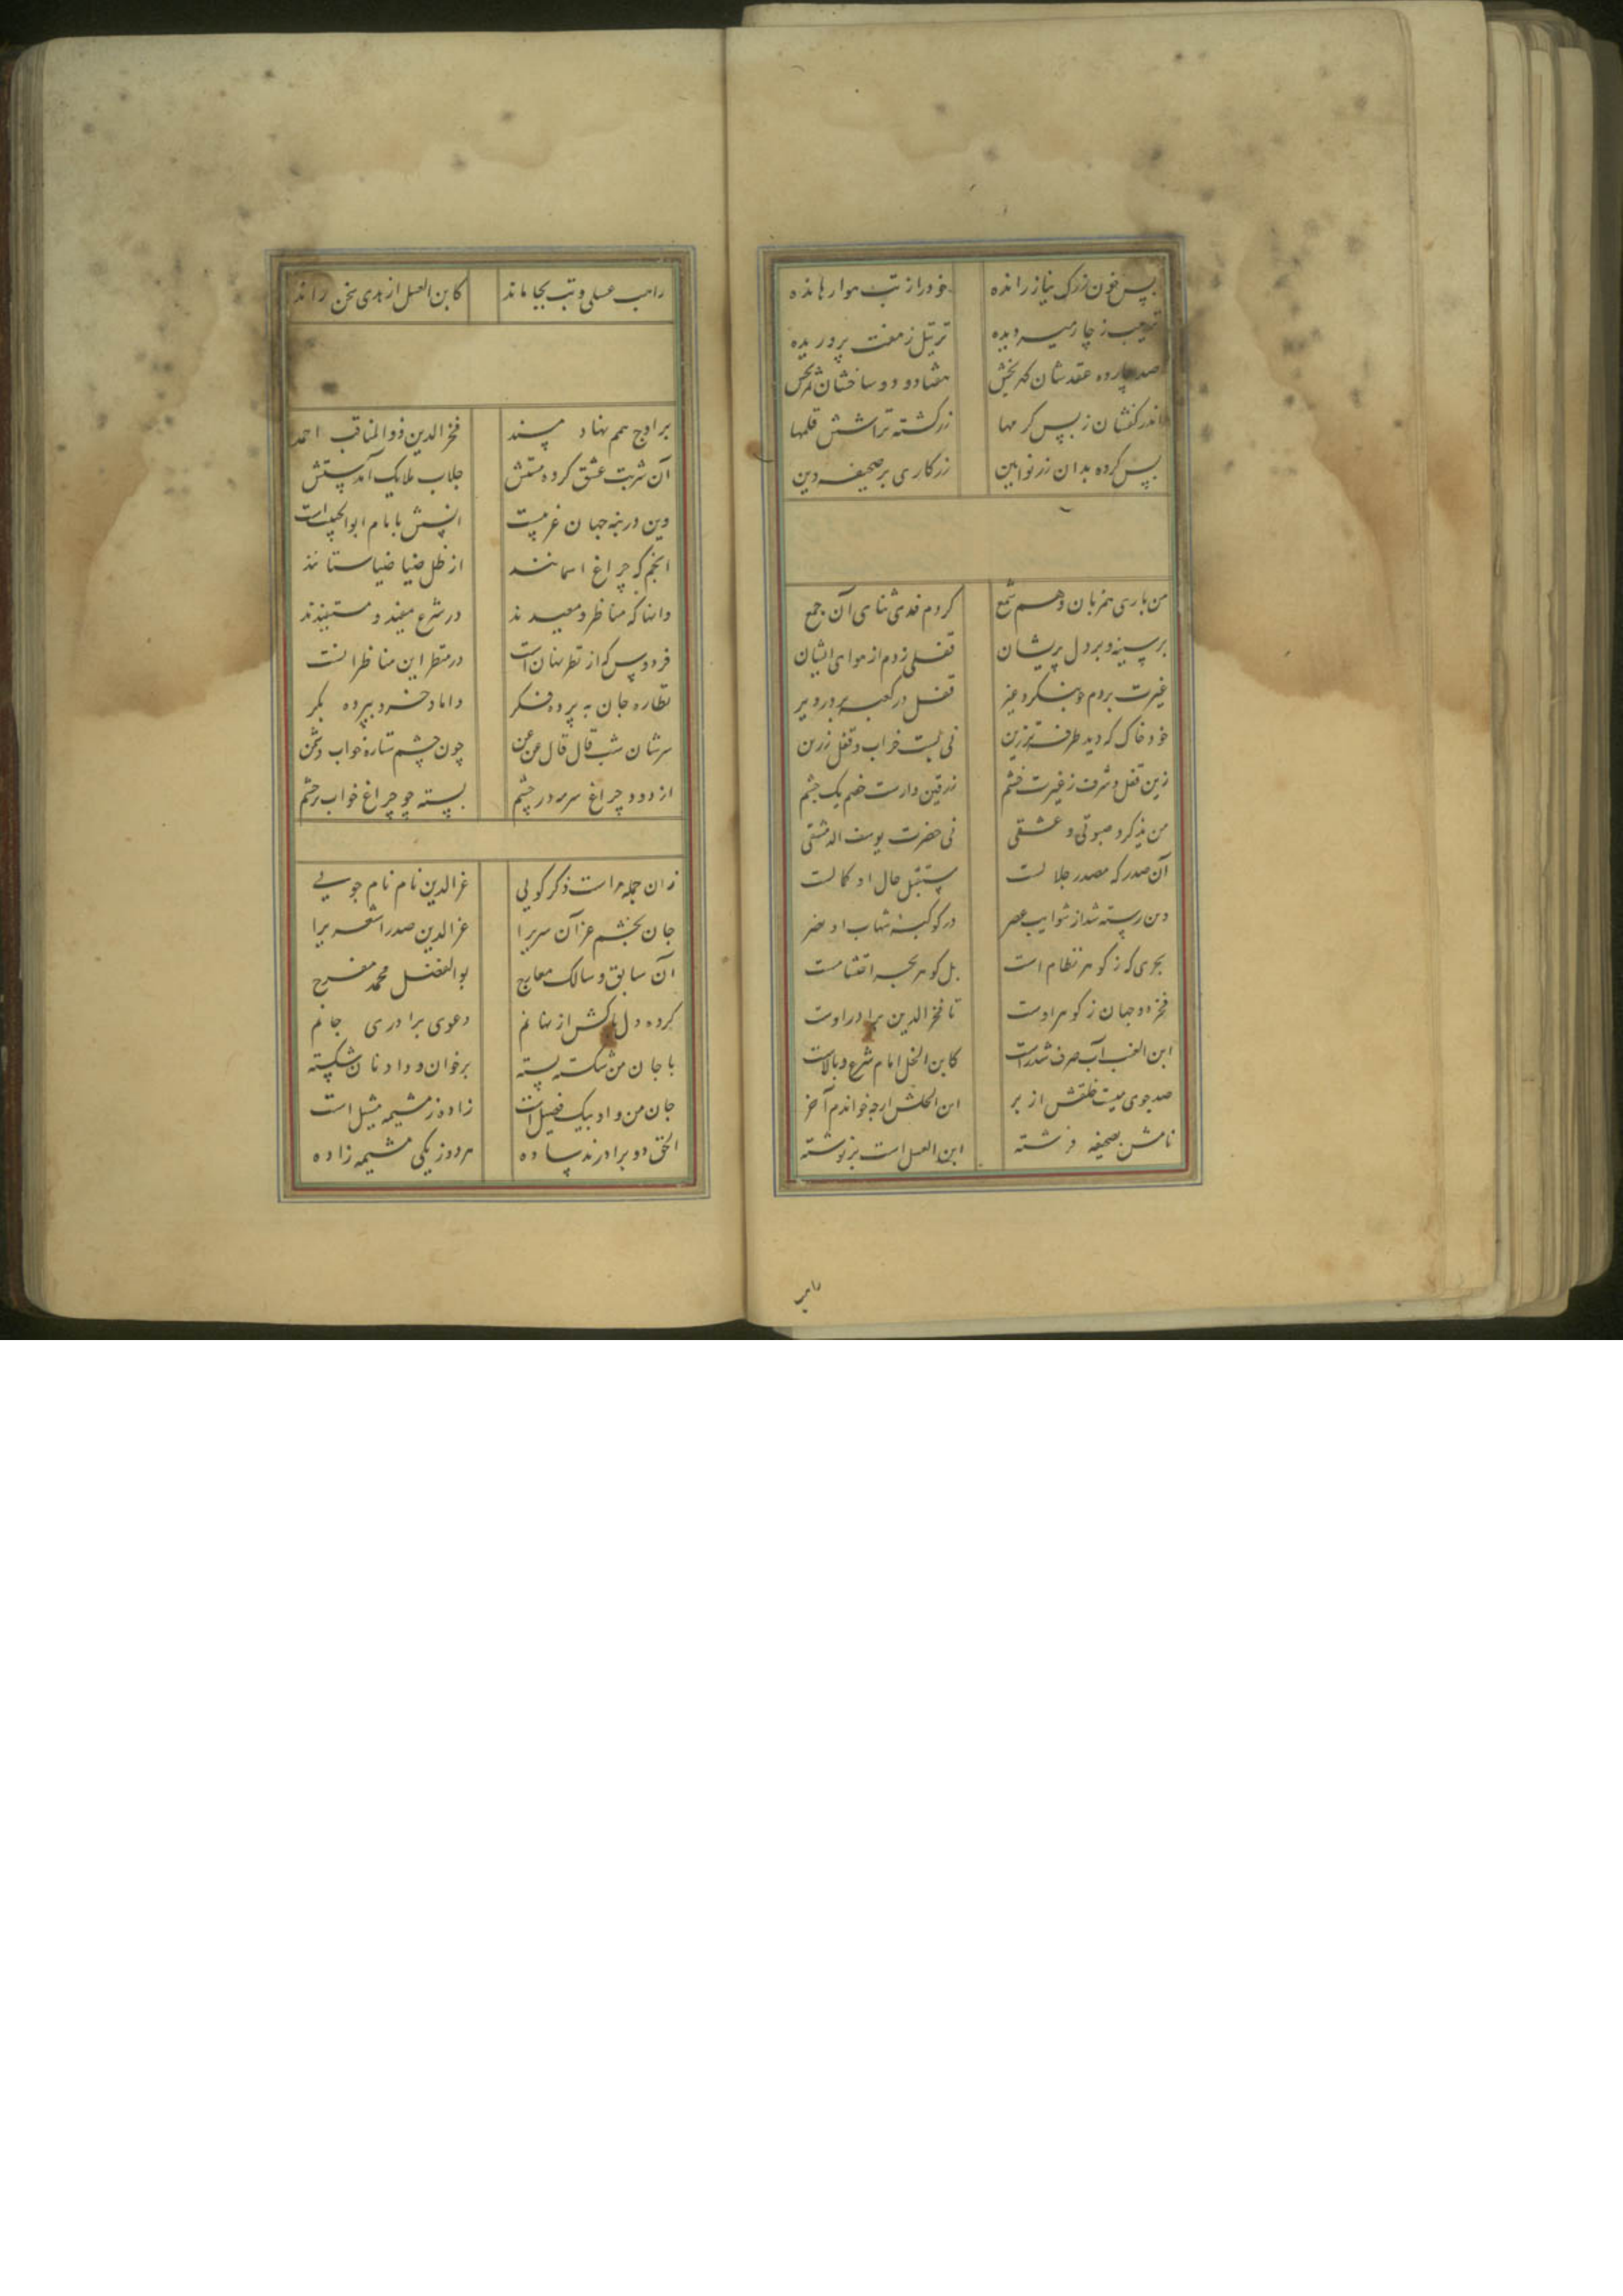 پس خون زرک نیاز رانده خود را از تب هوا رهانده
ز چار میر دیده ترتیل ز هفت پروریده
صد چارده عقدشان گهربخش هفتاد و دو ساخشان
اندر کفشان ز پس کرمها زر کشته تراشش قلمها
پس کرده بدان زر نوایین زرکاری بر صحیفه دین
من باری همزبان و هم شمع کردم فدی ثنای آن جمع
بر سینه و بر دل پریشان قفلی زدم از هوای ایشان
غیرت بردم قفل در کعبه
خود خاک که دید طرف زرین نی بست خراب و قفل زرین
زین قفل و شرف ز غیرت خشم زرقین دارست خصم یک چشم
من عشقی نی حضرت یوسف الدمشقی
آن صدر که مصدر جلالست مستقبل حال او کمالست
دین رسته شد از شوایب عصر در کوکبه شهاب او نصر
بحری که ز گوهر نظام است بل گوهر بحر احتشامست
فخر دو جهان ز گوهر اوست تا فخر الدین برادر اوست
ابن العنب آب صرف شد راست کابن النحل امام شرع و بالاست
صد جوی میست خلقش از بر ابن الخلش ارچه خواندم آخر
نامش بصحیفه فرشته ابن العسل است بر نوشته
راهب
راهب عسلی و تب بجا ماند کابن العسل از هدی سخن راند
بر اوج همم نهاد مسند فخر الدین ذو المناقب احمد
آن شربت عشق کرده مستش جلاب ملایک آمد ستش
وین در بنه جهان غریبست انسش با بام ابو الحبیب است
انجم که چراغ اسمانند از ظل ضیا ضیا ستانند
وانها که مناظر و معیدند در شرع مفید و مستفیدند
فردوس که از نظر نهان است در منظر این مناظرانست
نظاره جان به پرده فکر داماد خرد بپرده بکر
سرشان شب قال قال عن عن چون چشم ستاره خواب دشمن
از دود چراغ سرمه در چشم بسته چو چراغ خواب بر چشم
زان جمله مراست ذکر گویی عز الدین نام نام جویی
جان بخشم عز آن سریرا عز الدین صدر اشعریرا
آن سابق و سالک معارج بو الفضل محمد مفرح
کرده دل پاکش از نهانم دعوی برادری جانم
با جان من شکسته بسته بر خوان و داد نان شکسته
جان من و او بیک فضیل است زاده ز مشیمه مثیل است
الحق دو برادرند ساده هر دو ز یکی مشیمه زاده